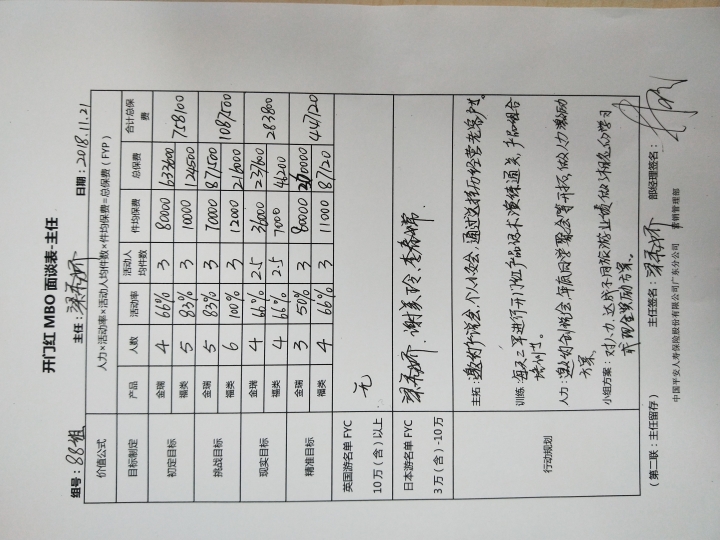 开门红 MBO 面谈表-主任
组号：88组 主任： 日期：2018.11.21
价值公式 人力×活动率×活动人均件数×件均保费=总保费（FYP）
目标制定 产品 人数 活动率 活动人均件数 件均保费 总保费 合计总保费
初定目标 金瑞 4 66% 3 80000 633600 758100
福类 5 83% 3 10000 124500
挑战目标 金瑞 5 83% 3 70000 871500 1087500
福类 6 100% 3 12000 216000
现实目标 金瑞 4 66% 2.5 36000 237600 283800
福类 4 66% 2.5 7000 46200
精准目标 金瑞 3 50% 3 80000 447120
福类 4 66% 3 11000 87120
英国游名单 FYC
10万（含）以上 无
日本游名单 FYC
3万（含）-10万
行动规划
主拓：邀约产说会、个人小女会、通过送挂历经营老客户。
训练：每天三早进行开门红产品话术演练通关、产品组合
培训。
人力：邀约创说会、年底同学聚会等开拓，做人力激励
方案。
小组方案：对人力、达成不同旅游业绩做
或现金奖励方案。
（第二联：主任留存） 主任签名： 部经理签名：
中国平安人寿保险股份有限公司广东分公司 营销管理部